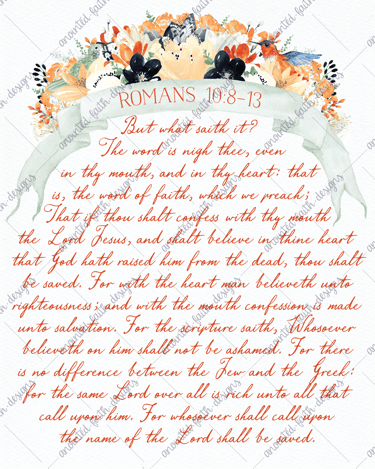 ROMANS 10:8-13
But what saith it?
The word is nigh thee, even
in thy mouth, and in thy heart: that
is, the word of faith, which we preach;
That if thou shalt confess with thy mouth
the Lord Jesus, and shalt believe in thine heart
that God hath raised him from the dead, thou shalt
be saved. For with the heart man believeth unto
righteousness; and with the mouth confession is made
unto salvation. For the scripture saith, Whosoever
believeth on him shall not be ashamed. For there
is no difference between the Jew and the Greek:
for the same Lord over all is rich unto all that
call upon him. For whosoever shall call upon
the name of the Lord shall be saved.
anointed faith designs